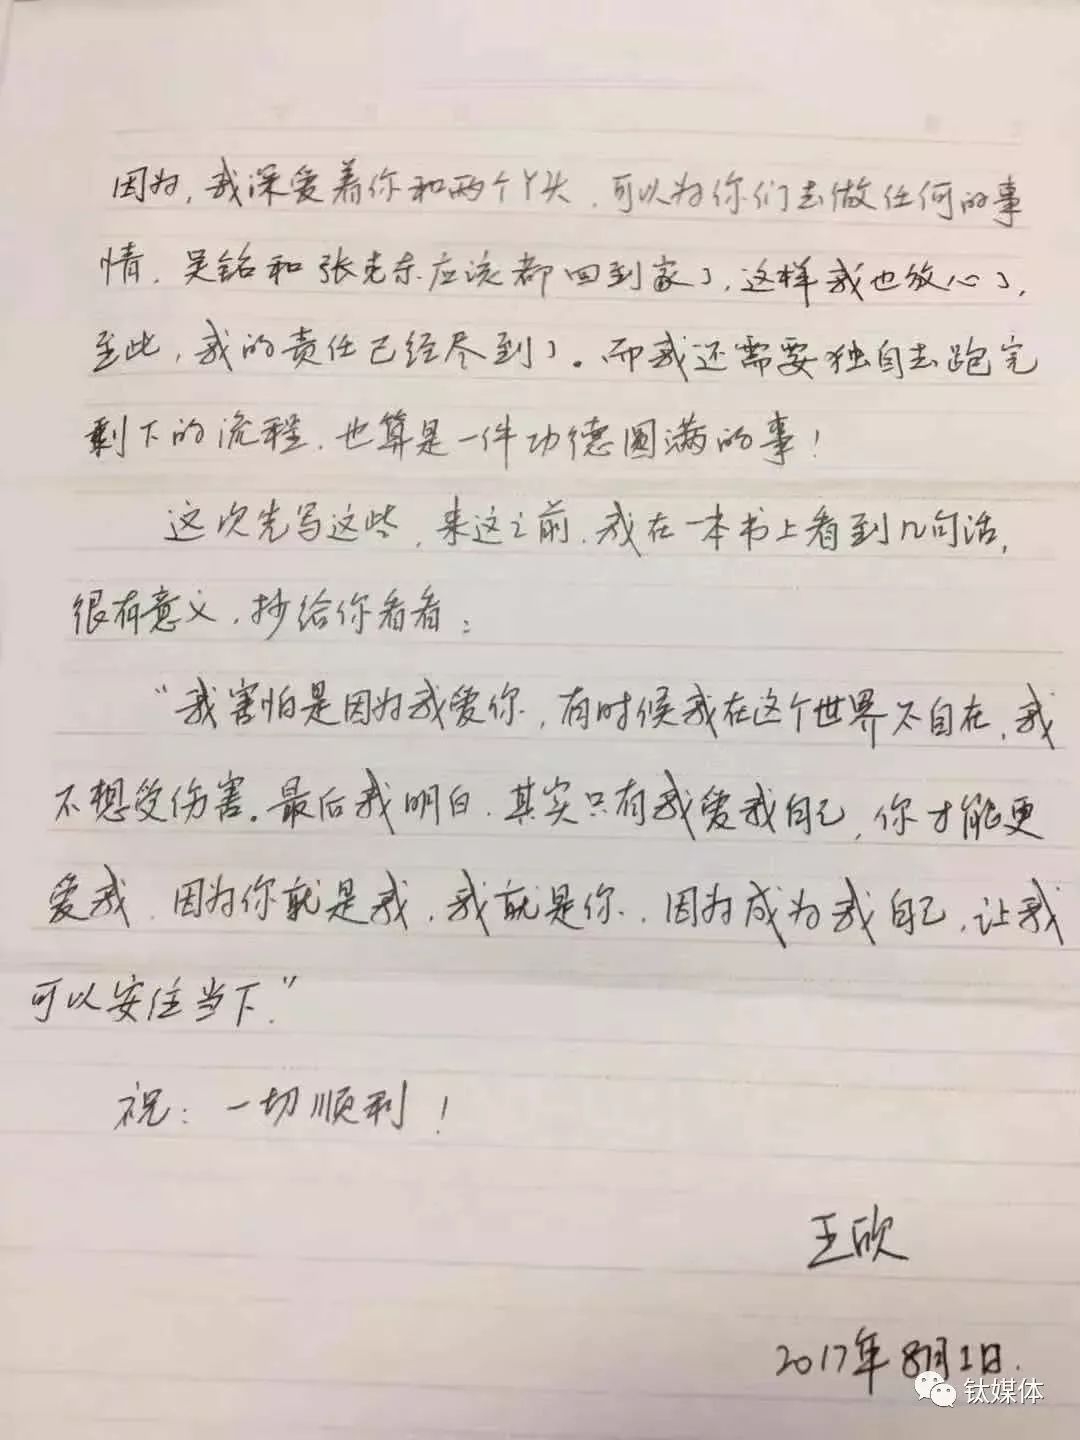 因为,我深爱着你和两个丫头,可以为你们去做任何的事
情,吴铭和张克东应该都回到家了,这样我也放心了,
至此,我的责任已经尽到了。而我还需要独自去跑完
剩下的流程,也算是一件功德圆满的事!
这次先写这些,来这之前,我在一本书上看到几句话,
很有意义,抄给你看看:
“我害怕是因为我爱你,有时候我在这个世界不自在,我
不想受伤害。最后我明白,其实只有我爱我自己,你才能更
爱我,因为你就是我,我就是你,因为成为我自己,让我
可以安住当下.”
祝:一切顺利!
王欣
2017年8月1日.
钛媒体